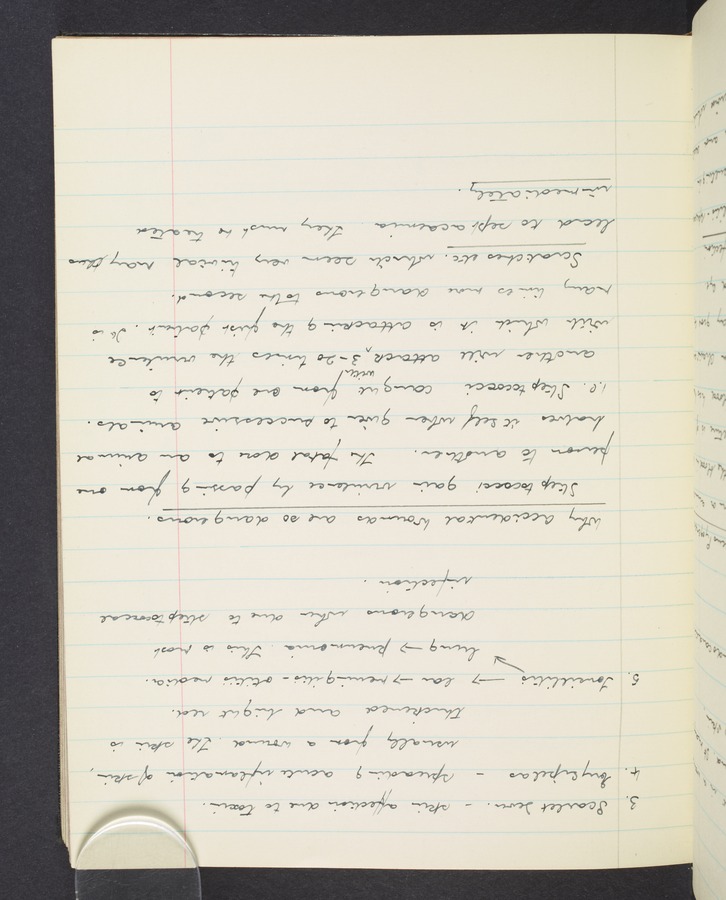 3. Scarlet Fever. - skin affection due to toxin.
4. Erysipelas - spreading acute inflamation of skin,
usually from a wound. The skin is
thickened and bright red.
5. Tonsillitis → Ear → meningitis - otitis media.
lung → pneumonia. This is most
dangerous when due to streptococcal
infection.
Why accidental wounds are so dangerous.
Streptococci gain virulence by passing from one
person to another. The fatal dose to an animal
halves itself when given to successive animals.
i.e. Streptococci caught from one patient to
another will attack with 3-20 times the virulence
with which it is attacking the first patient. It is
many times more dangerous to the second.
Scratches etc. which seem very trivial may
lead to septicaemia. They must be treated
immediately.